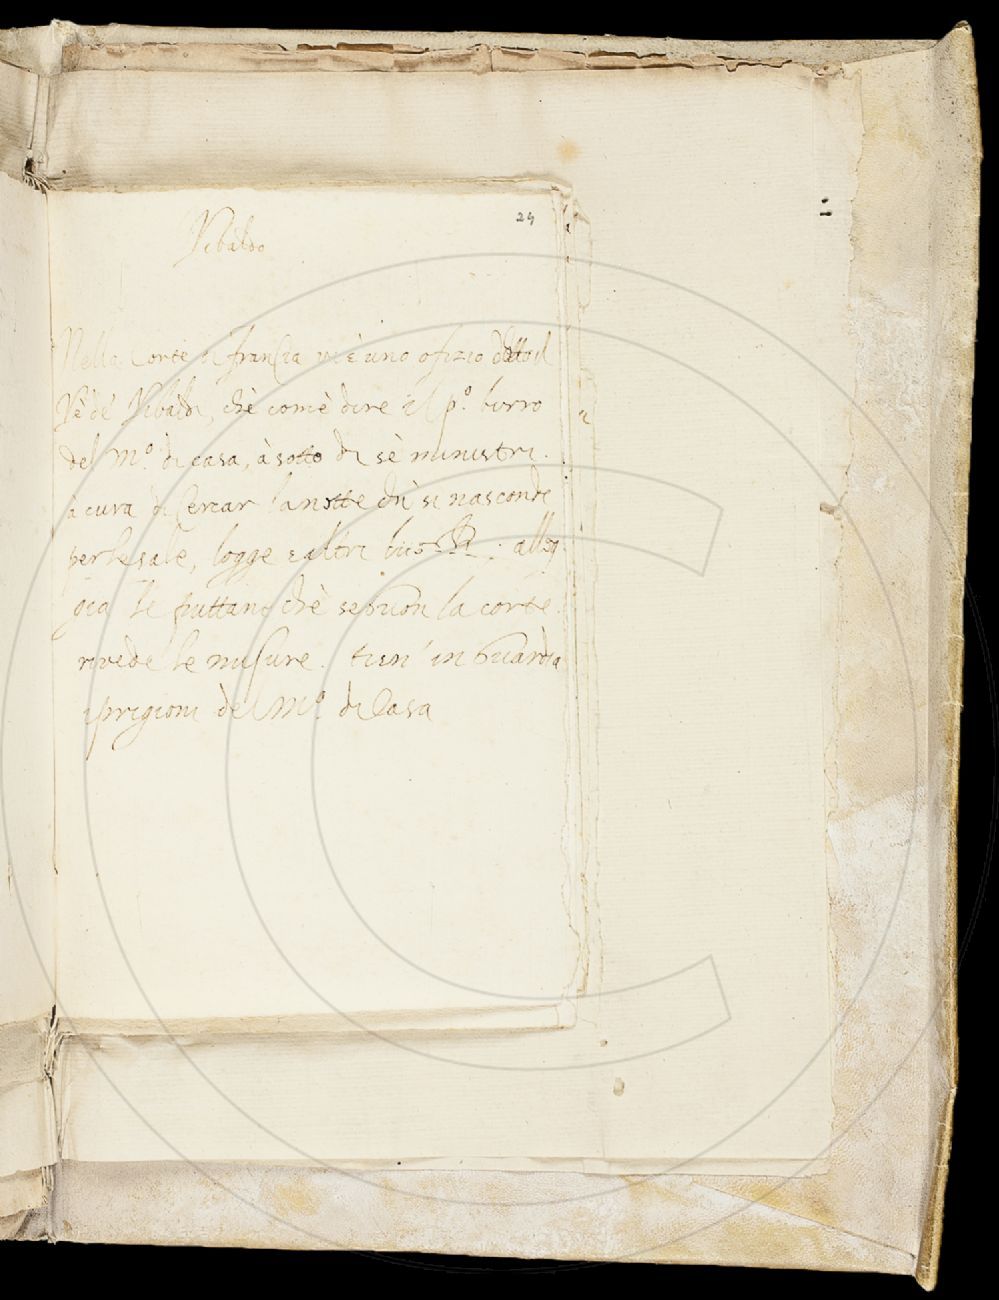 24
Ribaldo
Nella Corte di francia vi è uno ofizio detto il
Rè dè Ribaldi, chè comè dire il p.º birro
del M.º di casa, à sotto di sè ministri.
à cura di Cercar la notte chi si nasconde
per le sale, logge e altri ; allog
gia le puttane chè seguon la corte.
rivede le misure. tien' in guardia
i prigioni del M.º di Casa